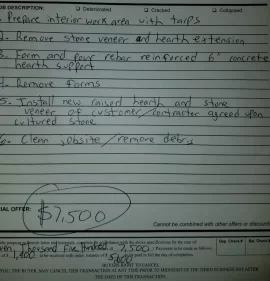 JOB DESCRIPTION: Deteriorated Cracked Collapsed
1. Prepare interior work area with tarps
2. Remove stone veneer and hearth extension
3. Form and pour rebar reinforced 6" concrete
hearth support
4. Remove forms
5. Install new raised hearth and stone
veneer of customer/contractor agreed upon
cultured stone
6. Clean jobsite/remove debris
SPECIAL OFFER: $7,500
Cannot be combined with other offers or discounts
Seven Thousand Five Hundred 7,500
1,900
BUYER'S RIGHT TO CANCEL
THE BUYER MAY CANCEL THIS TRANSACTION AT ANY TIME PRIOR TO MIDNIGHT OF THE THIRD BUSINESS DAY AFTER
THE DATE OF THIS TRANSACTION